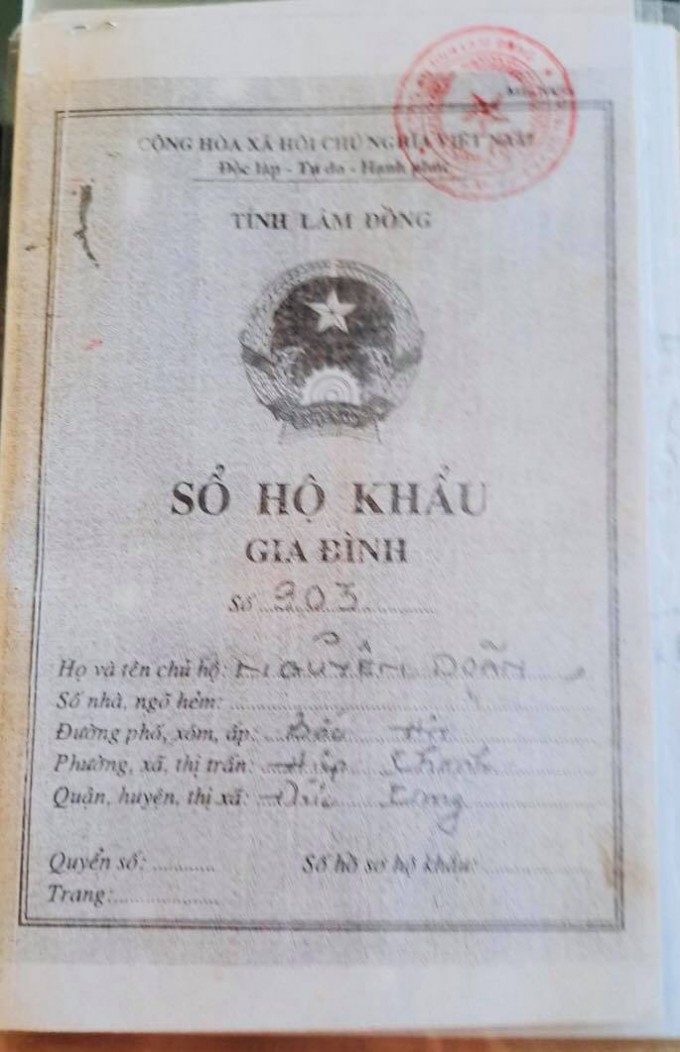 CỘNG HÒA XÃ HỘI CHỦ NGHĨA VIỆT NAM
Độc lập - Tự do - Hạnh phúc
TỈNH LÂM ĐỒNG
SỔ HỘ KHẨU
GIA ĐÌNH
Số 903
Họ và tên chủ hộ: NGUYỄN DOÃN
Số nhà, ngõ hẻm:
Đường phố, xóm, ấp:
Phường, xã, thị trấn: Hiệp Thạnh
Quận, huyện, thị xã: Đức Trọng
Quyển số:
Số hồ sơ hộ khẩu:
Trang: